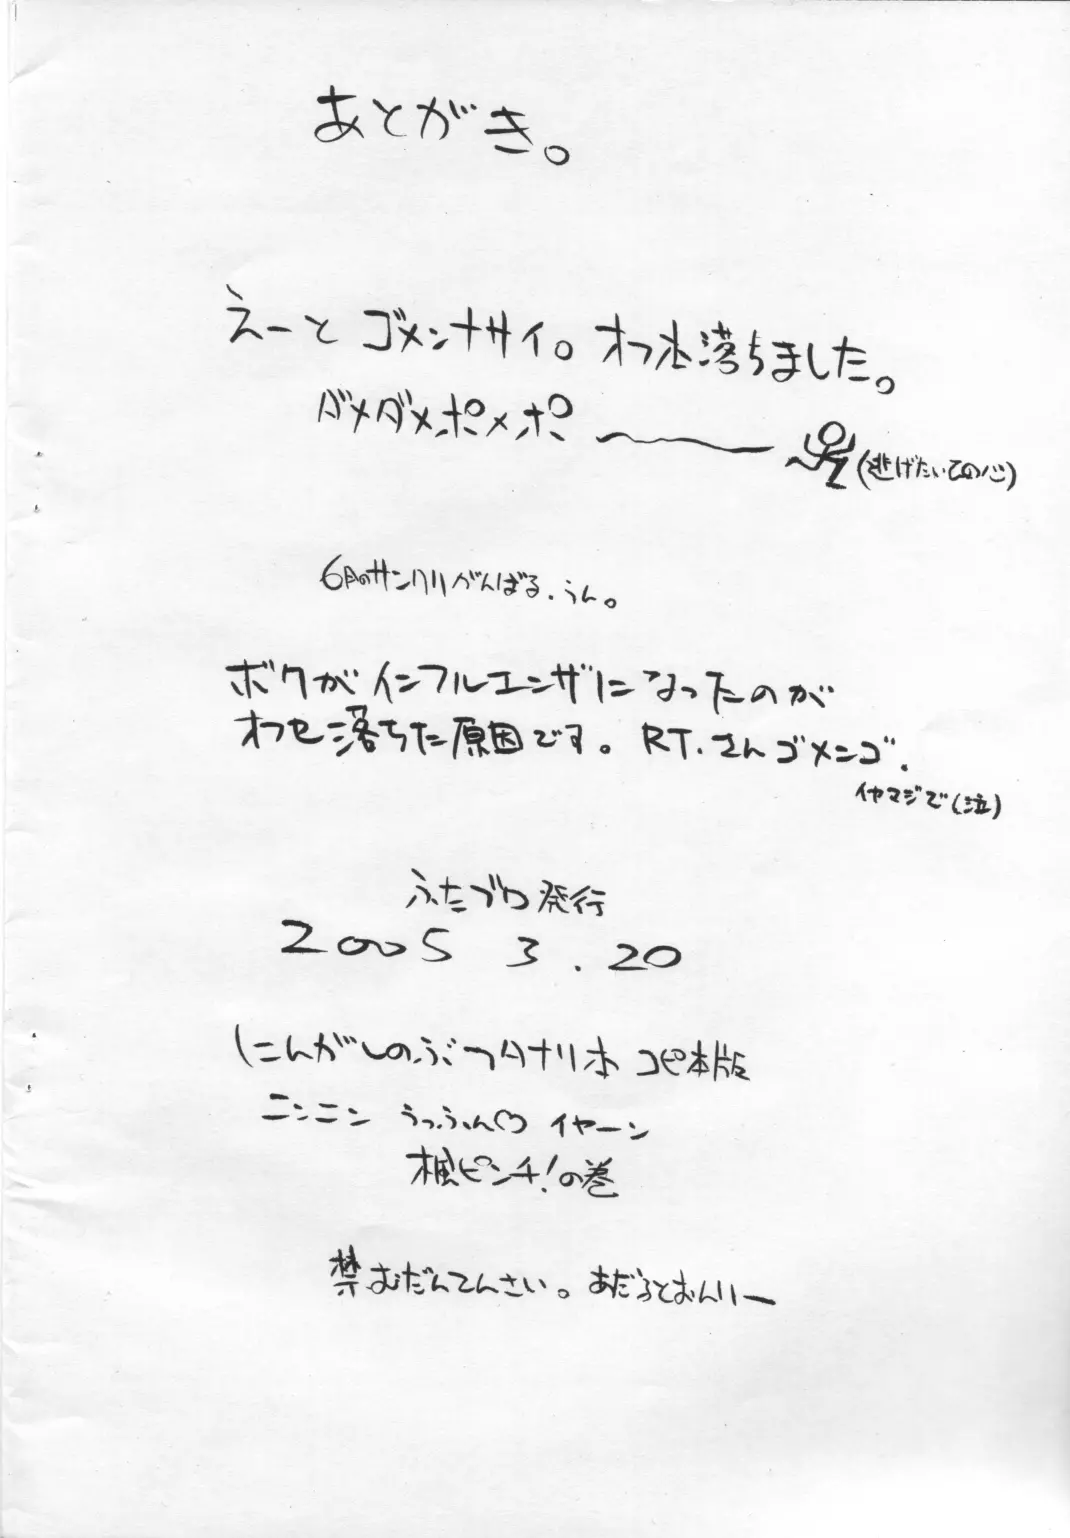 あとがき。
えーと ゴメンナサイ。オフ本落ちました。
ダメダメポメポ
(逃げたいての心)
6月のサンクリがんばる.うん。
ボクがインフルエンザになったのが
オフセ落ちた原因です。RT.さんゴメンゴ.
イヤマジで(泣)
ふたブロ発行
2005 3.20
にんがしのぶつタナリホ コピ本版
ニンニン うっふん♡ イヤーン
楓ピンチ!の巻
禁むだんてんさい。あだるとおんりー